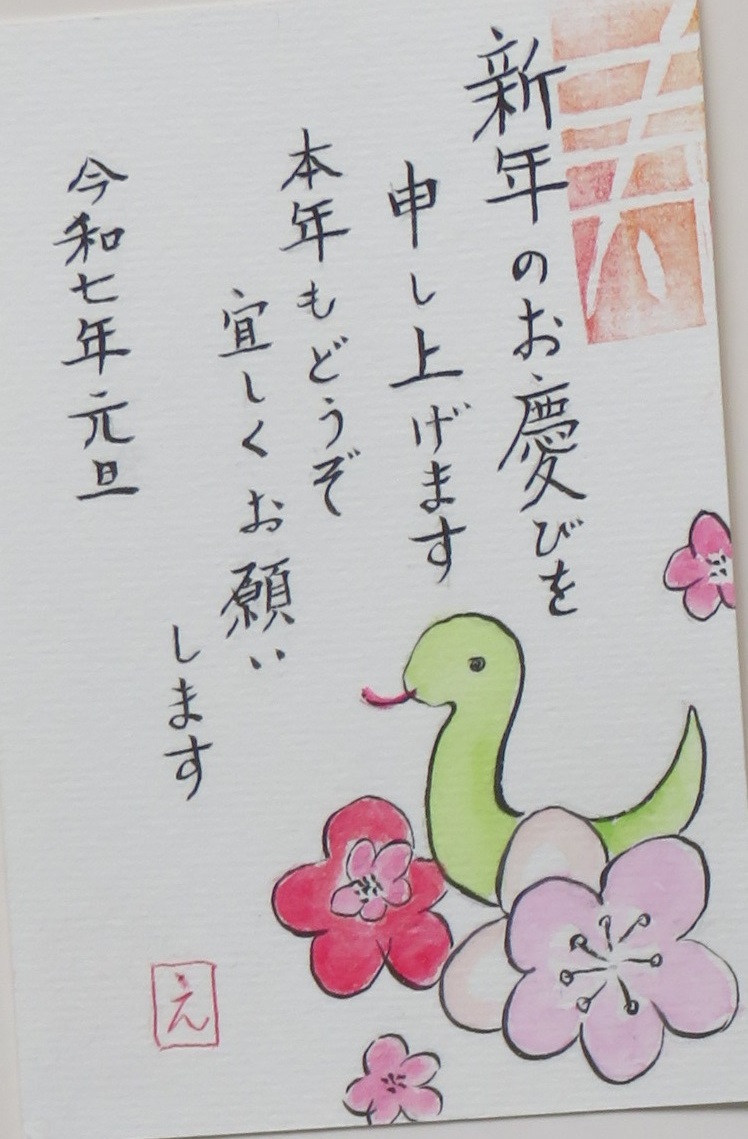 寿
新年のお慶びを
申し上げます
本年もどうぞ
宜しくお願い
します
今和七年元旦
え